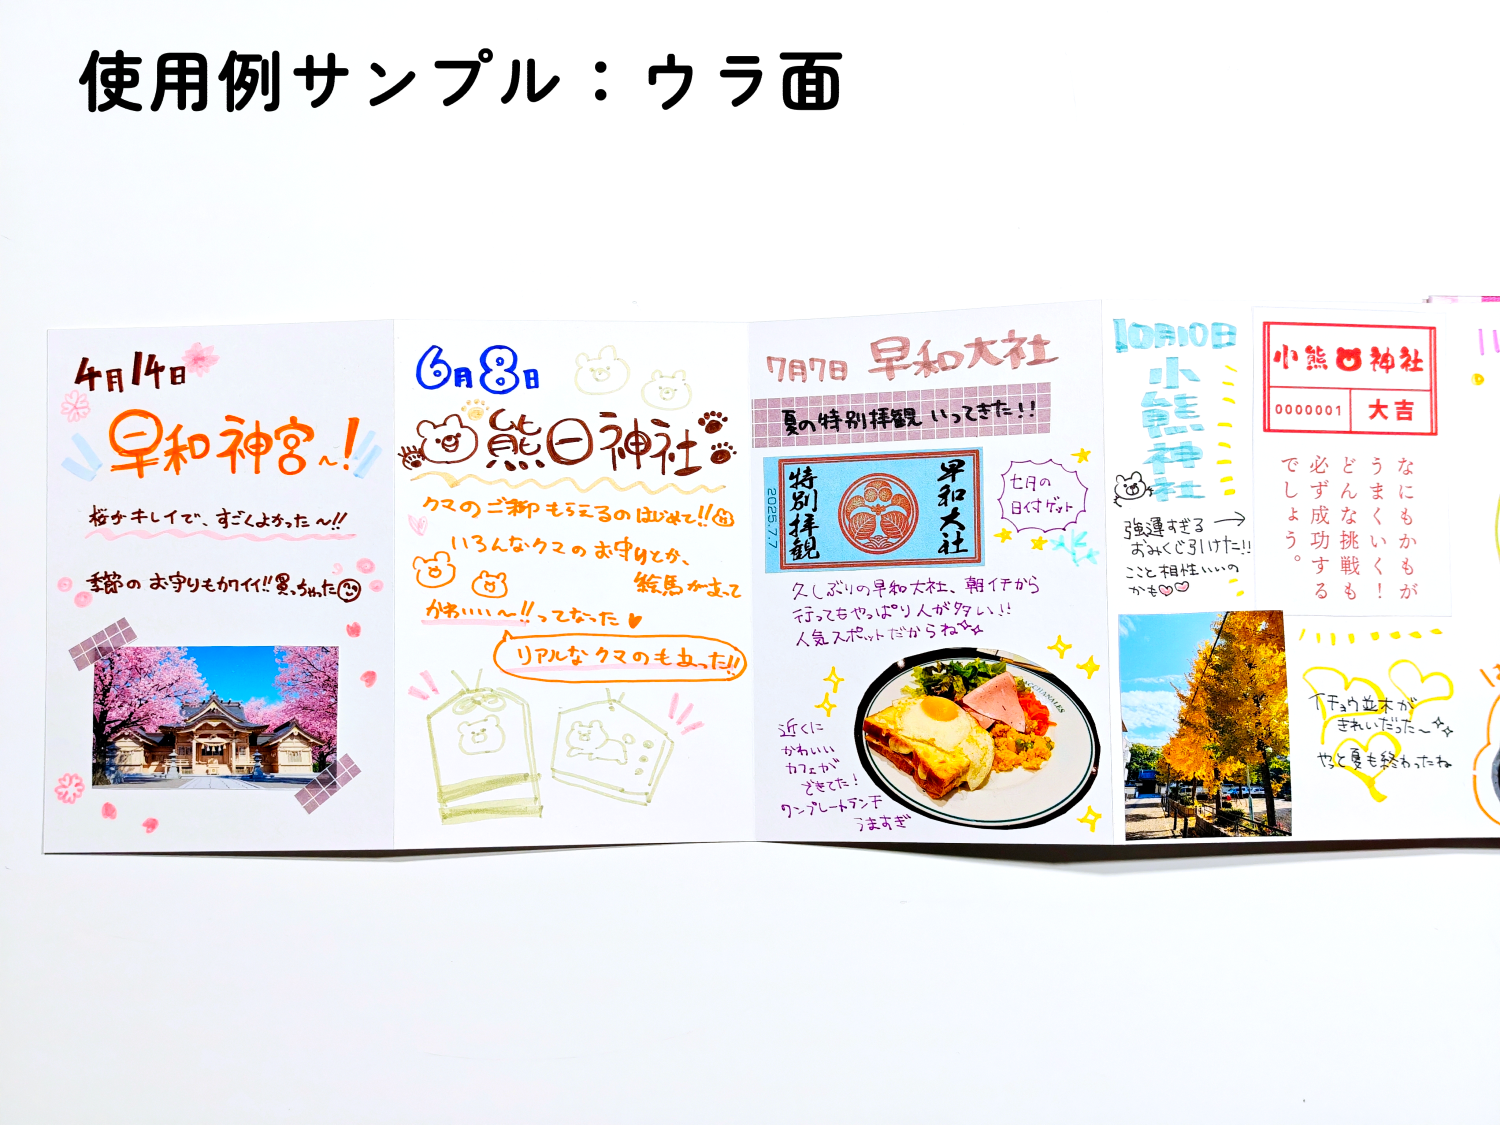 使用例サンプル：ウラ面
4月14日
早和神宮~!
桜がキレイで、すごくよかった~!!
季節の お守りもカワイイ!! 買っちゃった
6月8日
熊日神社
クマのご御朱印もらえるのはじめて!!
いろんなクマのお守りとか、
絵馬があって
かわいい~!! ってなった
リアルなクマのもあった!!
7月7日 早和大社
夏の特別拝観 いってきた!!
特別拝観
早和大社
2025.7.7
七月の
日付ゲット
久しぶりの早和大社、朝イチから
行ってもやっぱり人が多い!!
人気スポットだからね
近くに
かわいい
カフェが
できてた!
ワンプレートランチ
うますぎ
10月10日
小熊神社
強運すぎる →
おみくじ引けた!!
ここと相性いいの
かも
小熊神社
0000001
大吉
なにもかもが
うまくいく!
どんな挑戦も
必ず成功する
でしょう。
イチョウ並木が
きれいだった~
やっと夏も終わったね